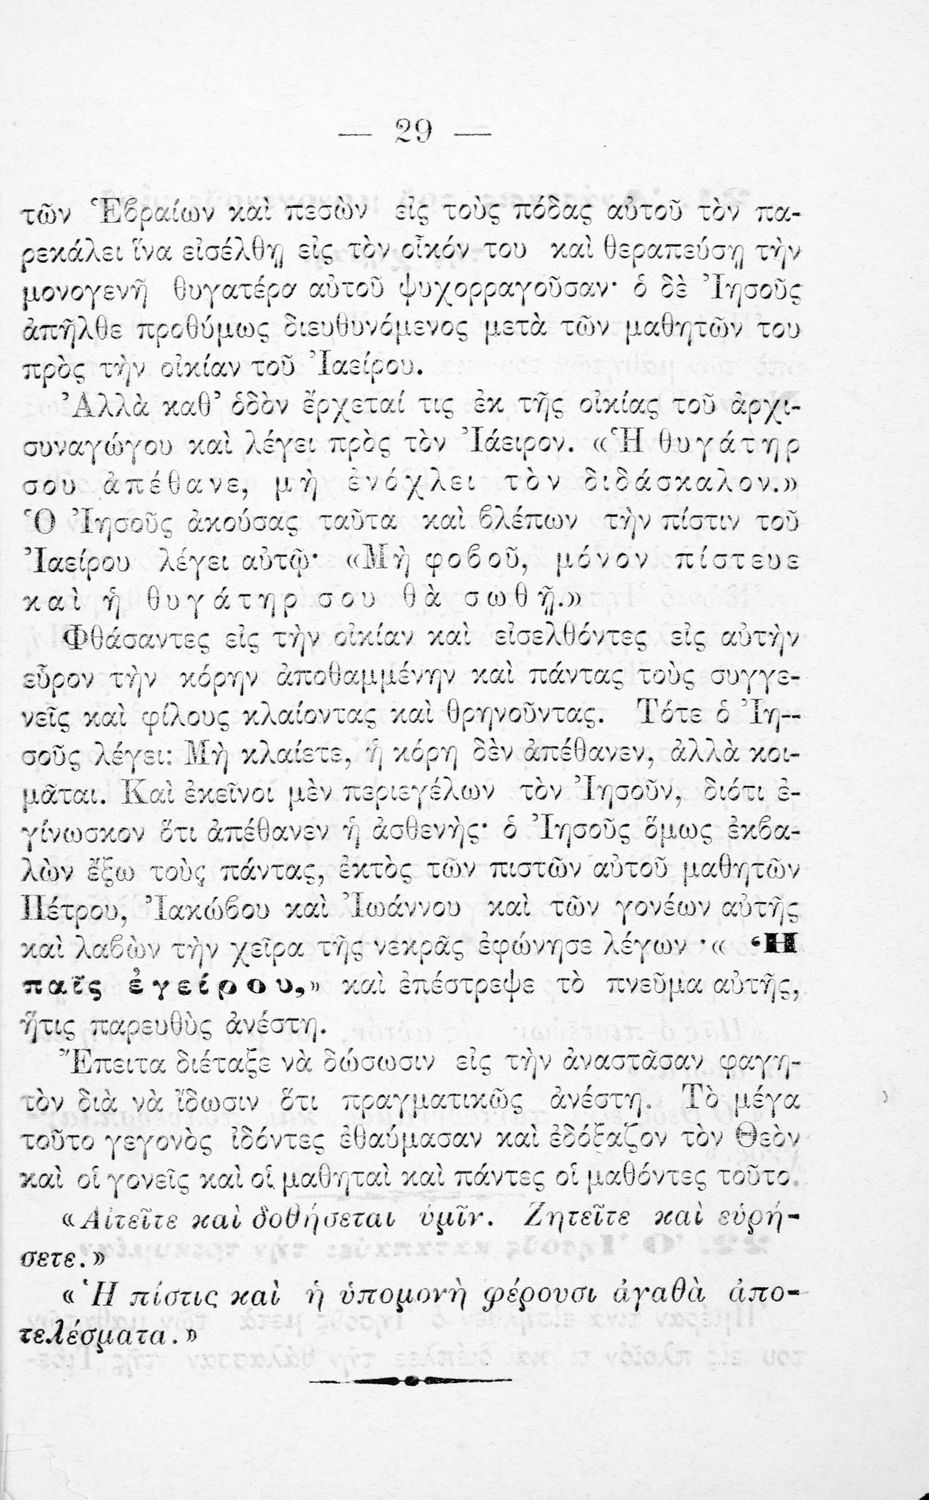 — 29 —
τῶν Ἑβραίων καὶ πεσὼν εἰς τοὺς πόδας αὐτοῦ τὸν πα-
ρεκάλει ἵνα εἰσέλθῃ εἰς τὸν οἶκόν του καὶ θεραπεύσῃ τὴν
μονογενῆ θυγατέρα αὐτοῦ ψυχορραγοῦσαν· ὁ δὲ Ἰησοῦς
ἀπῆλθε προθύμως διευθυνόμενος μετὰ τῶν μαθητῶν του
πρὸς τὴν οἰκίαν τοῦ Ἰαείρου.
Ἀλλὰ καθ’ ὁδὸν ἔρχεταί τις ἐκ τῆς οἰκίας τοῦ ἀρχι-
συναγώγου καὶ λέγει πρὸς τὸν Ἰάειρον. «Ἡ θυγάτηρ
σου ἀπέθανε, μὴ ἐνόχλει τὸν διδάσκαλον.»
Ὁ Ἰησοῦς ἀκούσας ταῦτα καὶ βλέπων τὴν πίστιν τοῦ
Ἰαείρου λέγει αὐτῷ· «Μὴ φοβοῦ, μόνον πίστευε
καὶ ἡ θυγάτηρ σου θὰ σωθῇ.»
Φθάσαντες εἰς τὴν οἰκίαν καὶ εἰσελθόντες εἰς αὐτὴν
εὗρον τὴν κόρην ἀποθαμμένην καὶ πάντας τοὺς συγγε-
νεῖς καὶ φίλους κλαίοντας καὶ θρηνοῦντας. Τότε ὁ Ἰη--
σοῦς λέγει: Μὴ κλαίετε, ἡ κόρη δὲν ἀπέθανεν, ἀλλὰ κοι-
μᾶται. Καὶ ἐκεῖνοι μὲν περιεγέλων τὸν Ἰησοῦν, διότι ἐ-
γίνωσκον ὅτι ἀπέθανεν ἡ ἀσθενής· ὁ Ἰησοῦς ὅμως ἐκβα-
λὼν ἔξω τοὺς πάντας, ἐκτὸς τῶν πιστῶν αὐτοῦ μαθητῶν
Πέτρου, Ἰακώβου καὶ Ἰωάννου καὶ τῶν γονέων αὐτῆς
καὶ λαβὼν τὴν χεῖρα τῆς νεκρᾶς ἐφώνησε λέγων ·« Ἡ
παῖς ἐγείρου,» καὶ ἐπέστρεψε τὸ πνεῦμα αὐτῆς,
ἥτις παρευθὺς ἀνέστη.
Ἔπειτα διέταξε νὰ δώσωσιν εἰς τὴν ἀναστᾶσαν φαγη-
τὸν διὰ νὰ ἴδωσιν ὅτι πραγματικῶς ἀνέστη. Τὸ μέγα
τοῦτο γεγονὸς ἰδόντες ἐθαύμασαν καὶ ἐδόξαζον τὸν Θεὸν
καὶ οἱ γονεῖς καὶ οἱ μαθηταὶ καὶ πάντες οἱ μαθόντες τοῦτο.
«Αἰτεῖτε καὶ δοθήσεται ὑμῖν. Ζητεῖτε καὶ εὑρή-
σετε.»
«Ἡ πίστις καὶ ἡ ὑπομονὴ φέρουσι ἀγαθὰ ἀπο-
τελέσματα.»